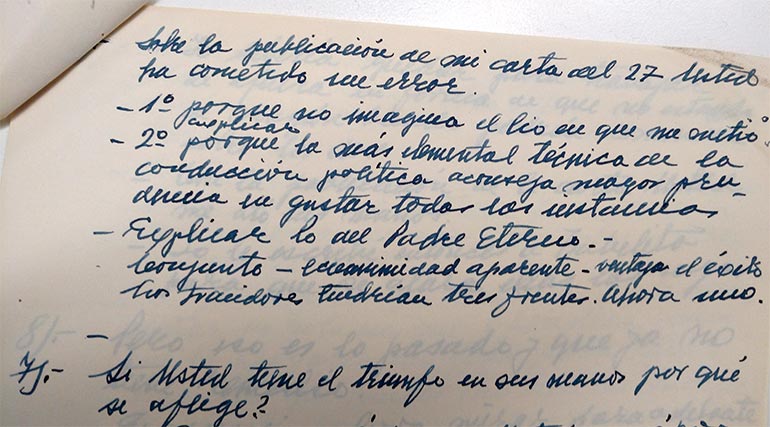 - Sobre la publicación de mi carta del 27 Usted
ha cometido un error.
- 1º porque no imagina el lio en que me metió
explicar
- 2º porque la más elemental técnica de la
conducción política aconseja mayor pru-
dencia en gastar todas las instancias
- Explicar lo del Padre Eterno.-
Conjunto - ecuanimidad aparente - ventajas el éxito
Los traidores tendrían tres frentes. Ahora uno.
8).- Pero eso es lo pasado y que ya no
-
7).- Si Usted tiene el triunfo en sus manos por qué
se aflige?